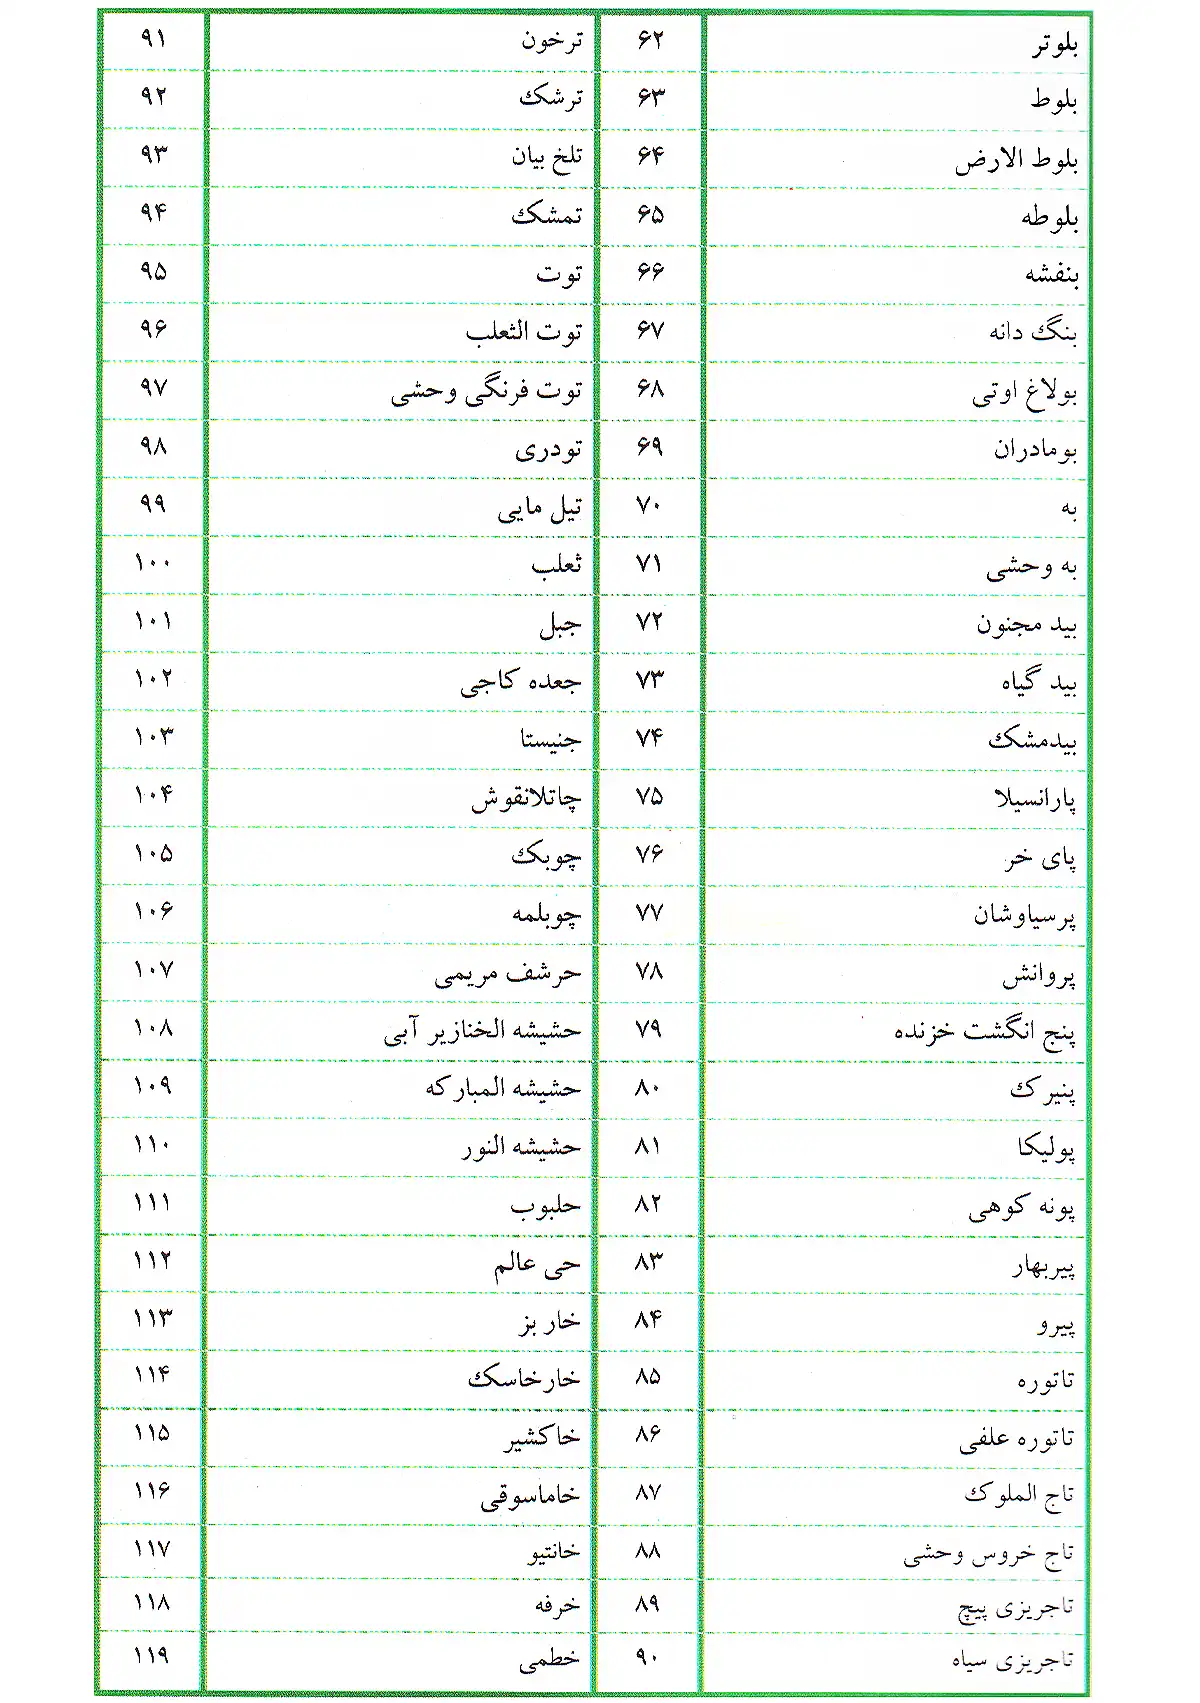 بلوتر ۶۲ ترخون ۹۱
بلوط ۶۳ ترشک ۹۲
بلوط الارض ۶۴ تلخ بیان ۹۳
بلوطه ۶۵ تمشک ۹۴
بنفشه ۶۶ توت ۹۵
بنگ دانه ۶۷ توت الثعلب ۹۶
بولاغ اوتی ۶۸ توت فرنگی وحشی ۹۷
بومادران ۶۹ تودری ۹۸
به ۷۰ تیل مایی ۹۹
به وحشی ۷۱ ثعلب ۱۰۰
بید مجنون ۷۲ جبل ۱۰۱
بید گیاه ۷۳ جعده کاجی ۱۰۲
بیدمشک ۷۴ جنیستا ۱۰۳
پارانسیلا ۷۵ چاتلانقوش ۱۰۴
پای خر ۷۶ چوبک ۱۰۵
پرسیاوشان ۷۷ چوبلمه ۱۰۶
پروانش ۷۸ حرشف مریمی ۱۰۷
پنج انگشت خزنده ۷۹ حشیشه الخنازیر آبی ۱۰۸
پنیرک ۸۰ حشیشه المبارکه ۱۰۹
پولیکا ۸۱ حشیشه النور ۱۱۰
پونه کوهی ۸۲ حلبوب ۱۱۱
پیربهار ۸۳ حی عالم ۱۱۲
پیرو ۸۴ خار بز ۱۱۳
تاتوره ۸۵ خارخاسک ۱۱۴
تاتوره علفی ۸۶ خاکشیر ۱۱۵
تاج الملوک ۸۷ خاماسوقی ۱۱۶
تاج خروس وحشی ۸۸ خانتیو ۱۱۷
تاجریزی پیچ ۸۹ خرفه ۱۱۸
تاجریزی سیاه ۹۰ خطمی ۱۱۹